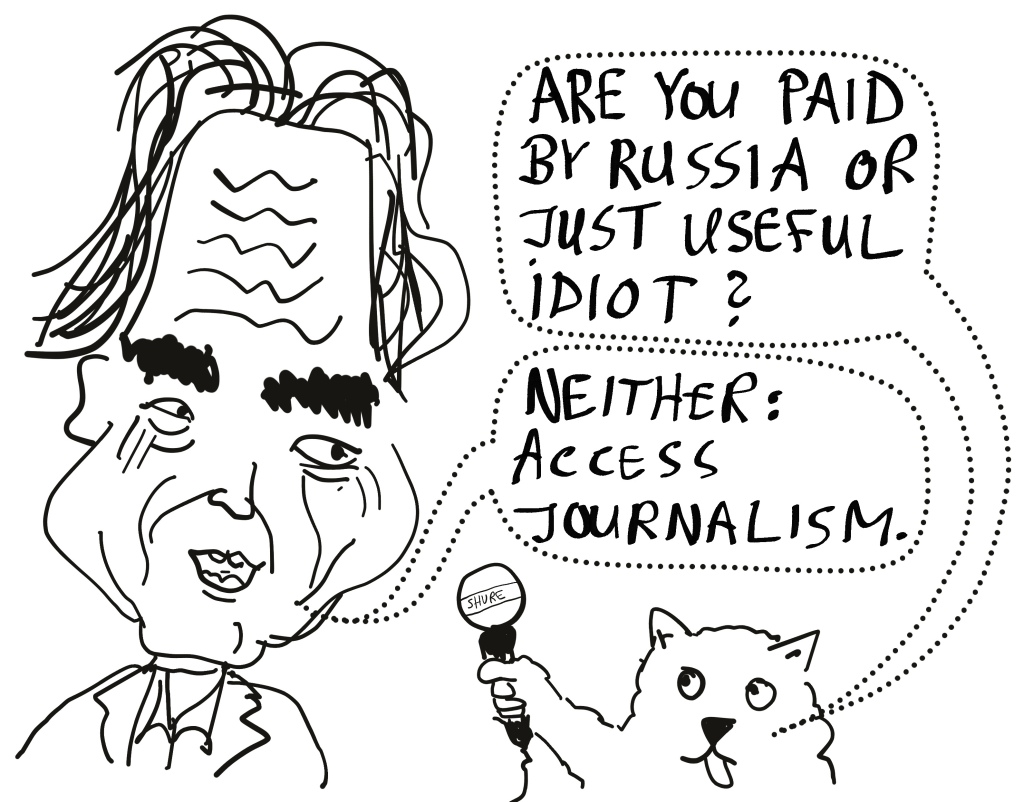 ARE YOU PAID
BY RUSSIA OR
JUST USEFUL
IDIOT ?
NEITHER:
ACCESS
JOURNALISM.
SHURE